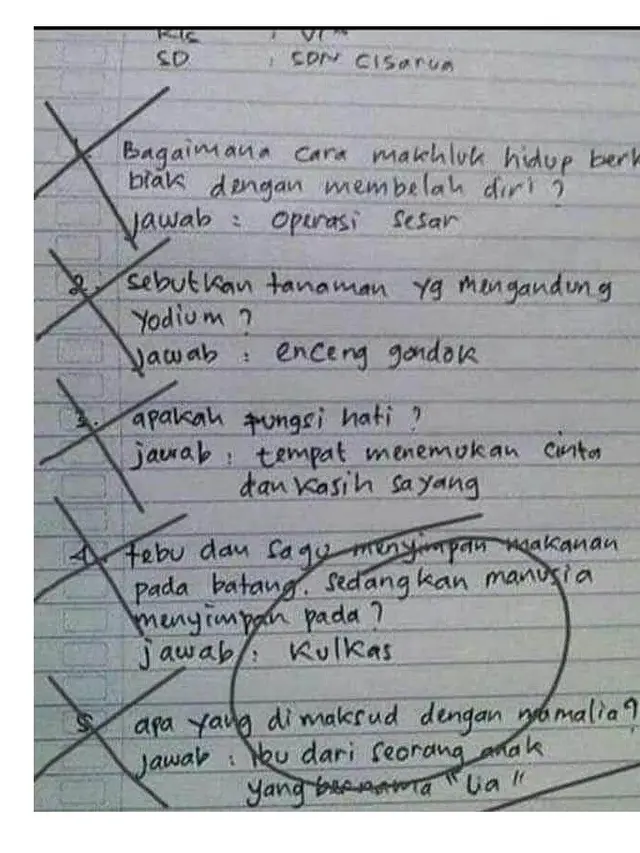 SD : SDN Cisarua
1. Bagaimana cara makhluk hidup berk
biak dengan membelah diri ?
jawab : operasi sesar
2. sebutkan tanaman yg mengandung
yodium ?
jawab : enceng gondok
3. apakah fungsi hati ?
jawab : tempat menemukan cinta
dan kasih sayang
4. tebu dan sagu menyimpan makanan
pada batang. sedangkan manusia
menyimpan pada ?
jawab : Kulkas
5. apa yang di maksud dengan mamalia ?
jawab : ibu dari seorang anak
yang bernama "Lia"